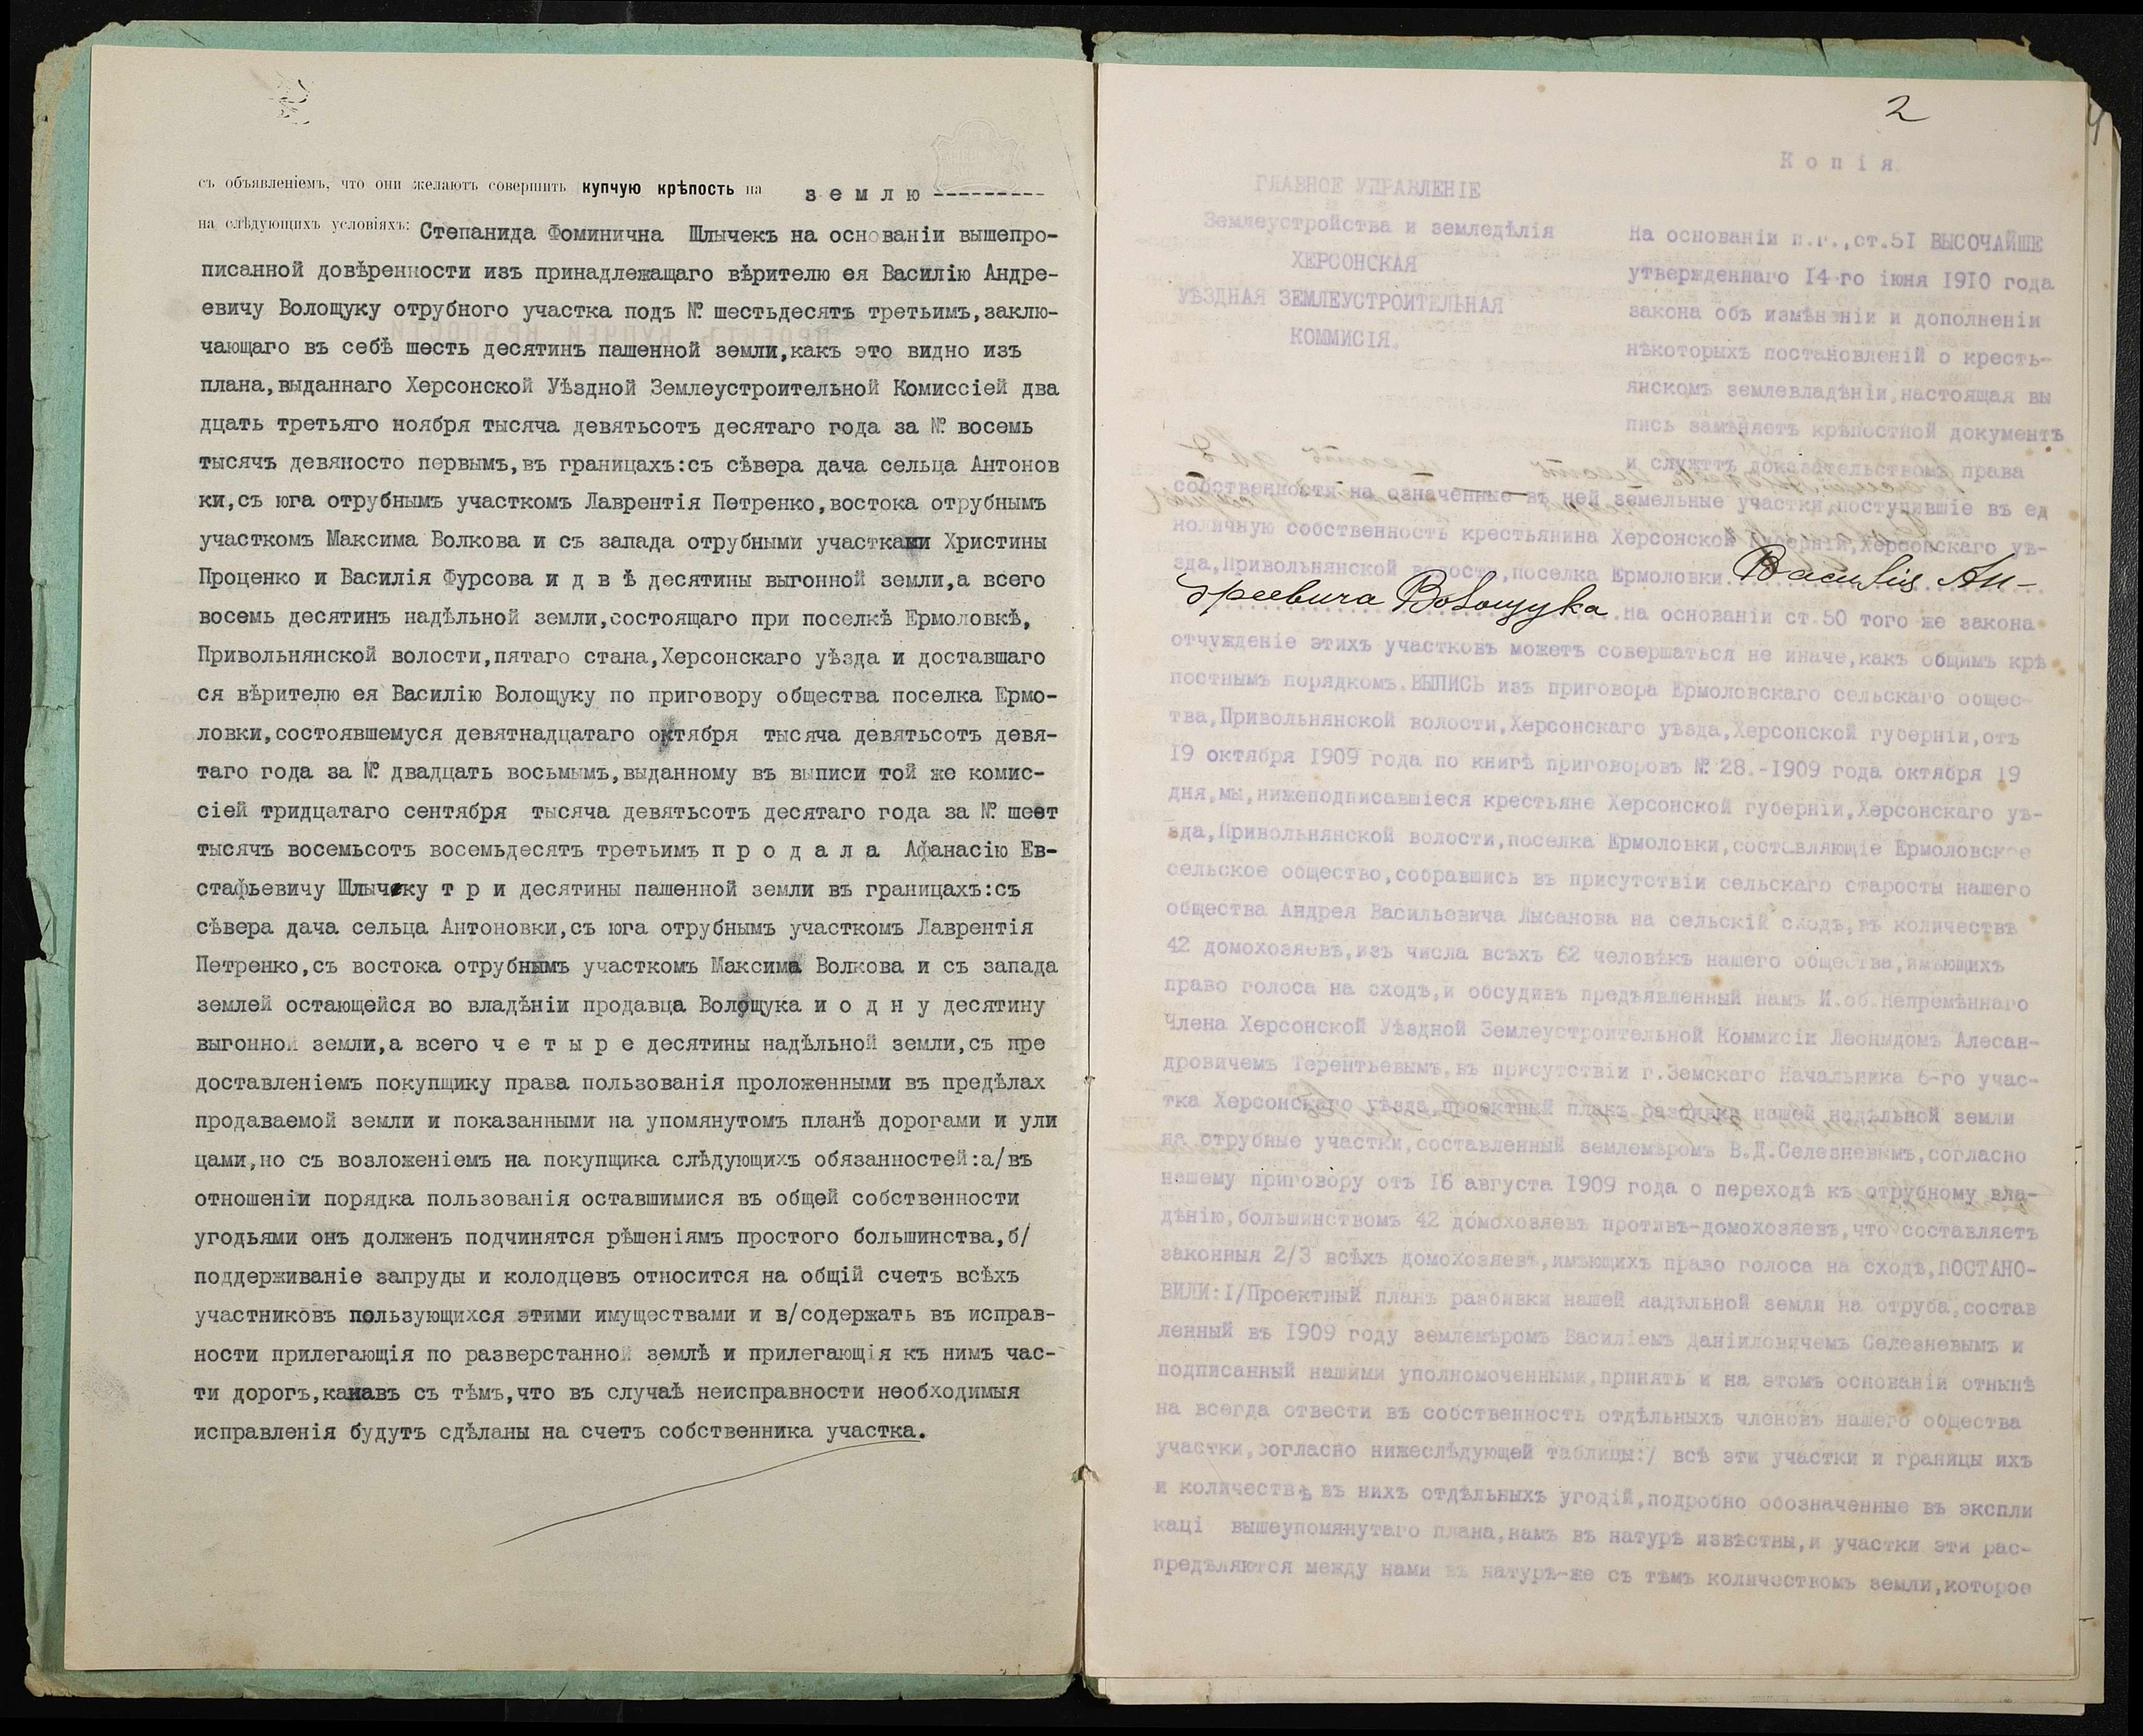 съ объявленіемъ, что они желаютъ совершить купчую крѣпость на з е м л ю ---------
на слѣдующихъ условіяхъ: Степанида Фоминична Шлычекъ на основаніи вышепро-
писанной довѣренности изъ принадлежащаго вѣрителю ея Василію Андре-
евичу Волощуку отрубного участка подъ № шестьдесятъ третьимъ,заклю-
чающаго въ себѣ шесть десятинъ пашенной земли,какъ это видно изъ
плана,выданнаго Херсонской Уѣздной Землеустроительной Комиссіей два
дцать третьяго ноября тысяча девятьсотъ десятаго года за № восемь
тысячъ девяносто первымъ,въ границахъ:съ сѣвера дача сельца Антонов
ки,съ юга отрубнымъ участкомъ Лаврентія Петренко,востока отрубнымъ
участкомъ Максима Волкова и съ запада отрубными участками Христины
Проценко и Василія Фурсова и д в ѣ десятины выгонной земли,а всего
восемь десятинъ надѣльной земли,состоящаго при поселкѣ Ермоловкѣ,
Привольнянской волости,пятаго стана,Херсонскаго уѣзда и доставшаго
ся вѣрителю ея Василію Волощуку по приговору общества поселка Ермо-
ловки,состоявшемуся девятнадцатаго октября тысяча девятьсотъ девя-
таго года за № двадцать восьмымъ,выданному въ выписи той же комис-
сіей тридцатаго сентября тысяча девятьсотъ десятаго года за № шест
тысячъ восемьсотъ восемьдесятъ третьимъ п р о д а л а Афанасію Ев-
стафьевичу Шлычеку т р и десятины пашенной земли въ границахъ:съ
сѣвера дача сельца Антоновки,съ юга отрубнымъ участкомъ Лаврентія
Петренко,съ востока отрубнымъ участкомъ Максима Волкова и съ запада
землей остающейся во владѣніи продавца Волощука и о д н у десятину
выгонной земли,а всего ч е т ы р е десятины надѣльной земли,съ пре
доставленіемъ покупщику права пользованія проложенными въ предѣлах
продаваемой земли и показанными на упомянутомъ планѣ дорогами и ули
цами,но съ возложеніемъ на покупщика слѣдующихъ обязанностей:а/въ
отношеніи порядка пользованія оставшимися въ общей собственности
угодьями онъ долженъ подчинятся рѣшеніямъ простого большинства,б/
поддерживаніе запруды и колодцевъ относится на общій счетъ всѣхъ
участниковъ пользующихся этими имуществами и в/содержать въ исправ-
ности прилегающія по разверстанной землѣ и прилегающія къ нимъ час-
ти дорогъ,канавъ съ тѣмъ,что въ случаѣ неисправности необходимыя
исправленія будутъ сдѣланы на счетъ собственника участка.
2
К о п і я.
ГЛАВНОЕ УПРАВЛЕНІЕ
Землеустройства и земледѣлія
ХЕРСОНСКАЯ
УѢЗДНАЯ ЗЕМЛЕУСТРОИТЕЛЬНАЯ
КОММИСІЯ.
На основаніи п.г.,ст.51 ВЫСОЧАЙШЕ
утвержденнаго 14-го іюня 1910 года
закона объ измѣненіи и дополненіи
нѣкоторыхъ постановленій о кресть-
янскомъ землевладѣніи,настоящая вы
пись замѣняетъ крѣпостной документъ
и служтъ доказательствомъ права
собственностя на означенные въ ней земельные участки,поступившіе въ ед
ноличную собственность крестьянина Херсонской губерніи,Херсонскаго уѣ-
зда,Привольнянской волости,поселка Ермоловки Василія Ан-
дреевича Волощука. На основаніи ст.50 того же закона
отчужденіе этихъ участковъ можетъ совершаться не иначе,какъ общимъ крѣ
постнымъ порядкомъ.ВЫПИСЬ изъ приговора Ермоловскаго сельскаго общес-
тва,Привольнянской волости,Херсонскаго уѣзда,Херсонской губерніи,отъ
19 октября 1909 года по книгѣ приговоровъ № 28.-1909 года октября 19
дня,мы,нижеподписавшіеся крестьяне Херсонской губерніи,Херсонскаго уѣ-
зда,Привольнянской волости,поселка Ермоловки,составляющіе Ермоловское
сельское общество,собравшись въ присутствіи сельскаго старосты нашего
общества Андрея Васильевича Лысанова на сельскій сходъ,въ количествѣ
42 домохозяевъ,изъ числа всѣхъ 62 человѣкъ нашего общества,имѣющихъ
право голоса на сходѣ,и обсудивъ предъявленный намъ И.об.Непремѣннаго
Члена Херсонской Уѣздной Землеустроительной Коммисіи Леонидомъ Алесан-
дровичемъ Терентьевымъ,въ присутствіи г.Земскаго Начальника 6-го учас-
тка Херсонскаго уѣзда,проектный планъ разбивки нашей надѣльной земли
на отрубные участки,составленный землемѣромъ В.Д.Селезневымъ,согласно
нашему приговору отъ 16 августа 1909 года о переходѣ къ отрубному вла-
дѣнію,большинствомъ 42 домохозяевъ противъ-домохозяевъ,что составляетъ
законныя 2/3 всѣхъ домохозяевъ,имѣющихъ право голоса на сходѣ,ПОСТАНО-
ВИЛИ:1/Проектный планъ разбивки нашей надѣльной земли на отруба,состав
ленный въ 1909 году землемѣромъ Василіемъ Даніиловичемъ Селезневымъ и
подписанный нашими уполномоченными,принять и на этомъ основаніи отнынѣ
на всегда отвести въ собственность отдѣльныхъ членовъ нашего общества
участки,согласно нижеслѣдующей таблицы:/ всѣ эти участки и границы ихъ
и количествѣ въ нихъ отдѣльныхъ угодій,подробно обозначенные въ экспли
каці вышеупомянутаго плана,намъ въ натурѣ извѣстны,и участки эти рас-
предѣляются между нами въ натурѣ-же съ тѣмъ количествомъ земли,которое